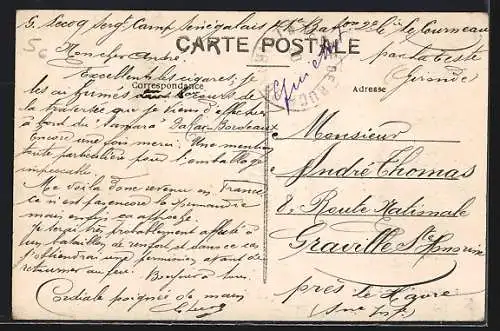 G. Lecocq Serg^t Camp Sénégalais
le Courneau
par la Teste
(Gironde)
5c
CARTE POSTALE
Correspondance
Adresse
Mon cher André.
Excellents les cigares, je
les ai fumés au cours de
la traversée que je viens d'effectuer
à bord du "Samara" Dakar-Bordeaux
Encore une fois merci. Une mention
toute particulière pour l'emballage
impeccable.
Me voilà donc revenu en France
ce n'est pas encore la Normandie
mais enfin ça approche.
Je serai très probablement affecté à
un bataillon de renfort et dans ce cas
j'obtiendrai une permission avant de
retourner au feu. Bonjour à tous.
Cordiale poignée de main
Monsieur
André Thomas
8, Route Nationale
Graville Ste Honorine
près le Havre
(Sne Infre)